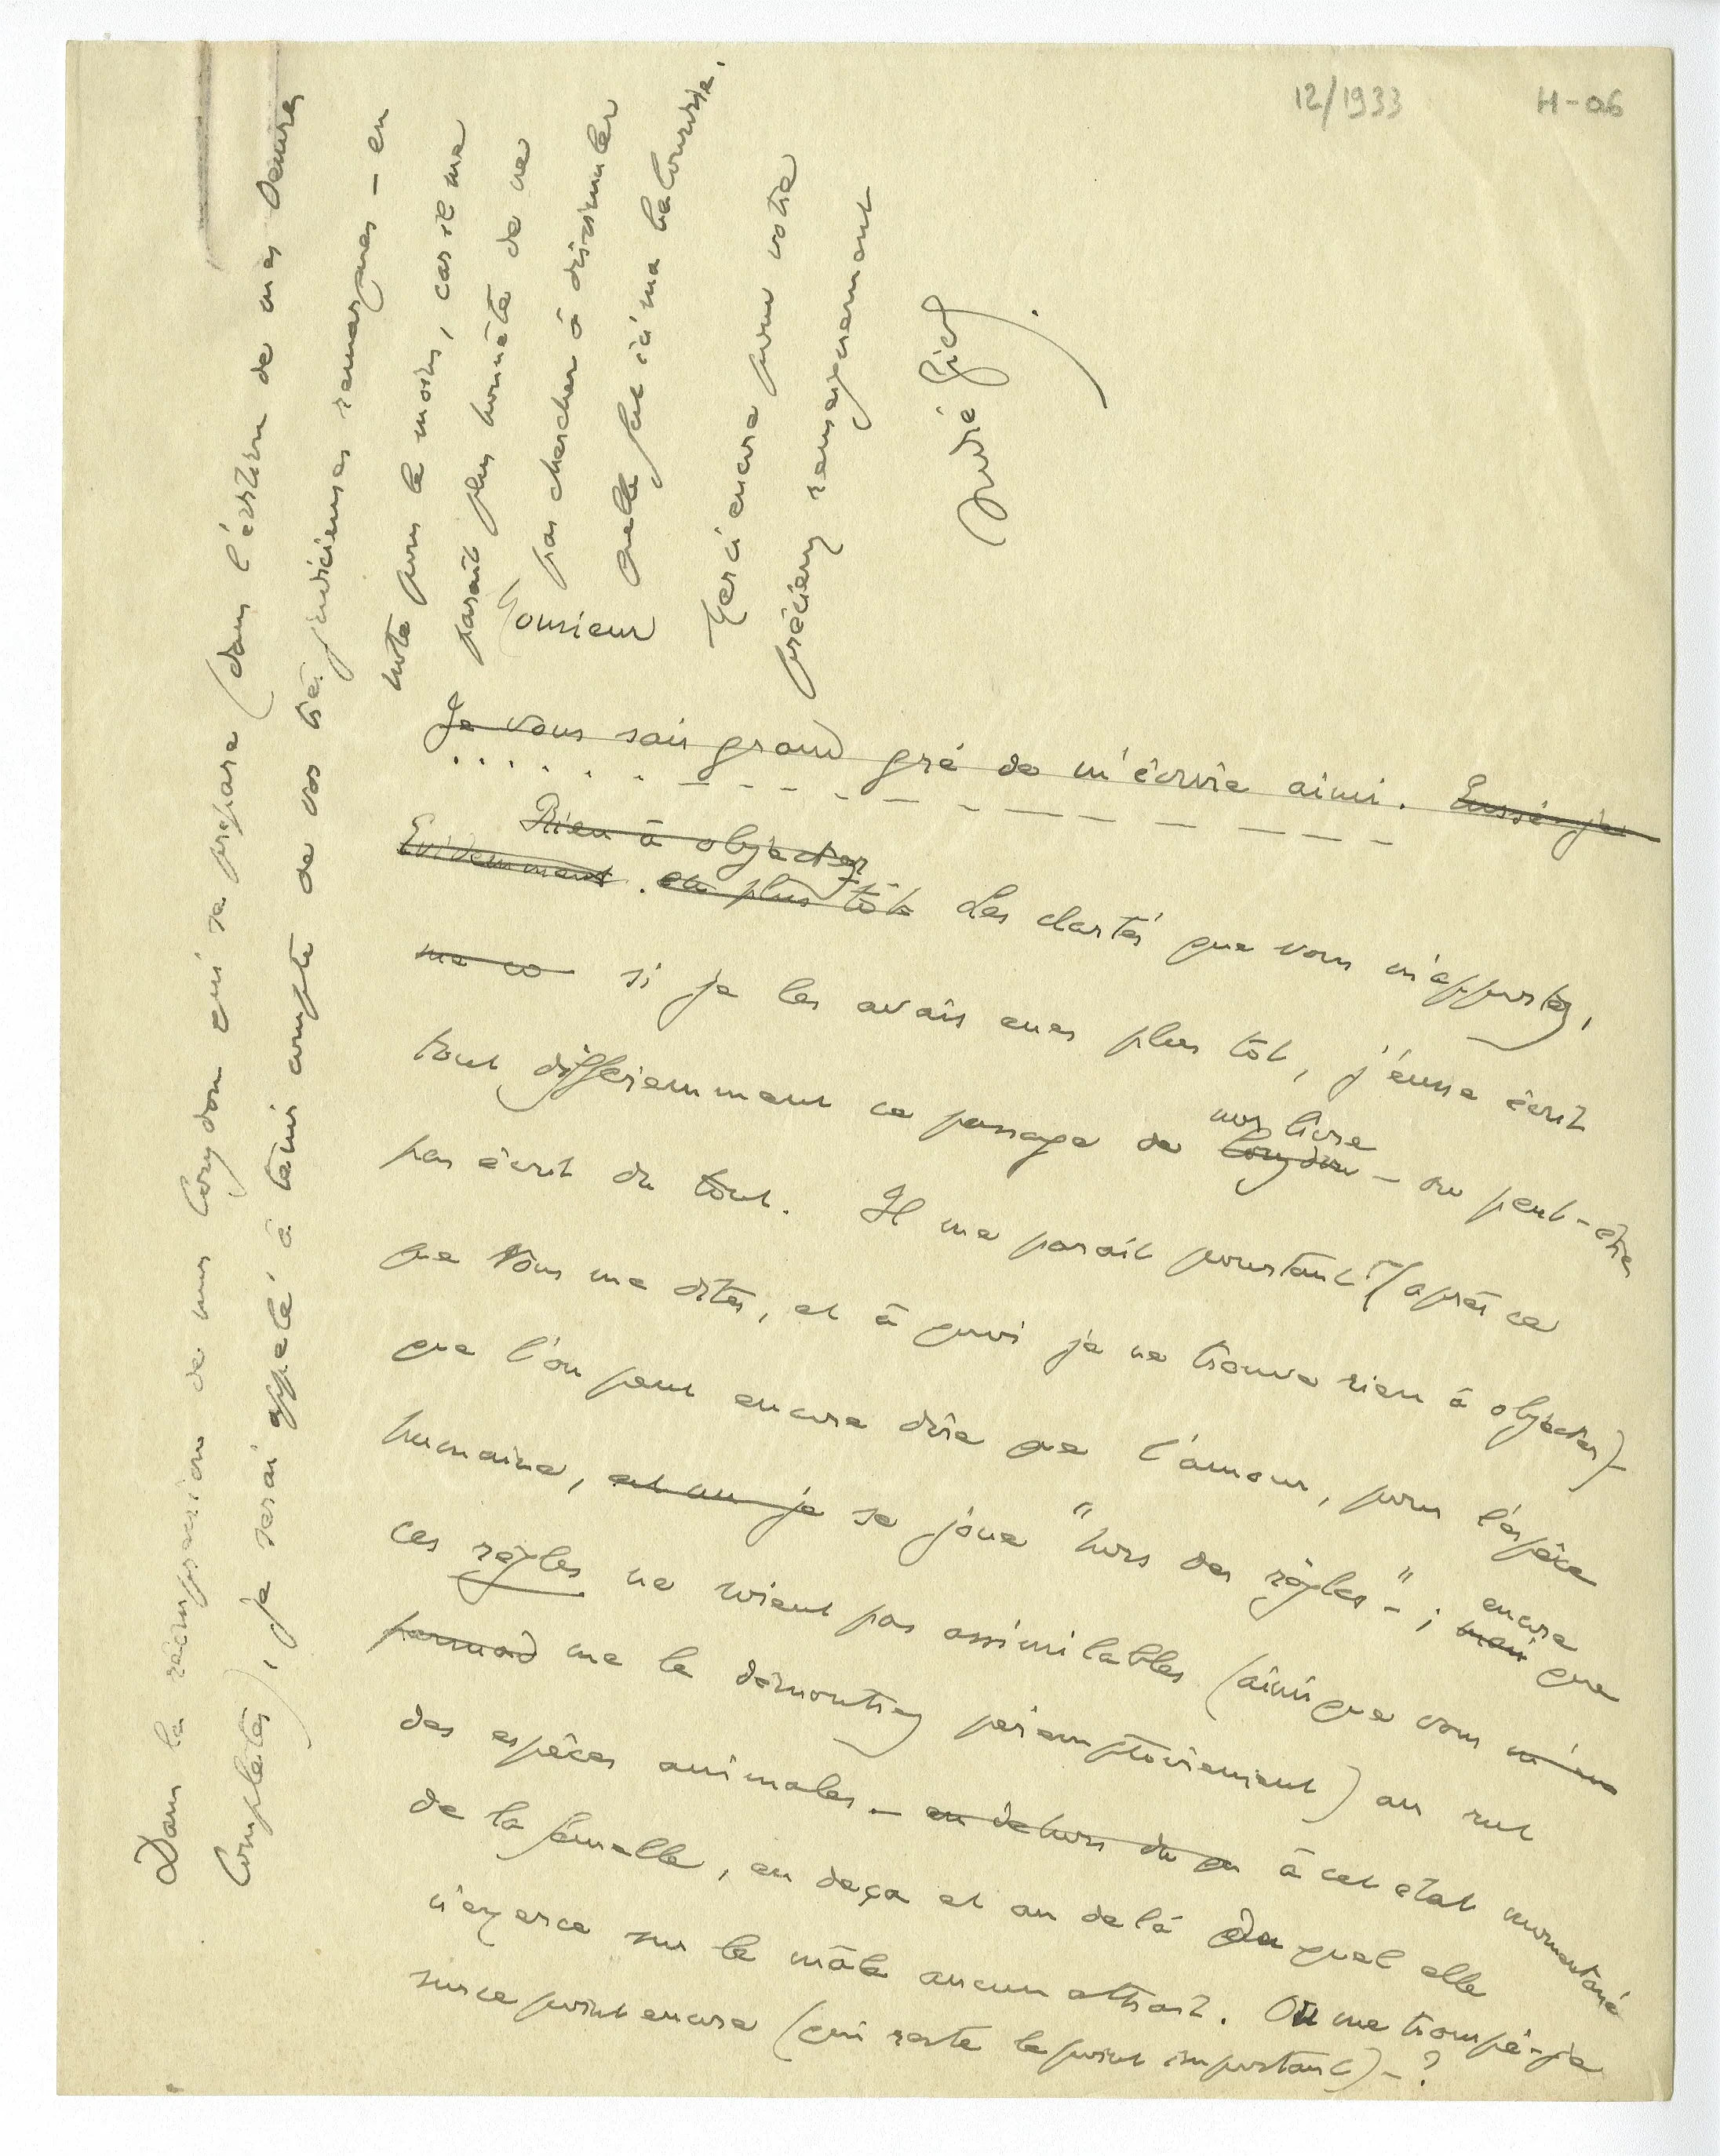 12/1933
H-06
Monsieur
Je vous sais grand gré de m'écrire ainsi. Eussé-je
Rien à objecter
Evidemment. plus tôt Les clartés que vous m'apportez,
me co si je les avais eues plus tôt, j'eusse écrit
mon livre
tout différemment ce passage de Corydon – ou peut-être
pas écrit du tout. Il me paraît pourtant (après ce
que vous me dites, et à quoi je ne trouve rien à objecter) –
que l'on peut encore dire que l'amour, pour l'espèce
humaine, et au je se joue "hors des règles" – ; encore
mais que
ces règles ne soient pas assimilables (ainsi que vous m'en
me le démontrez péremptoirement) au rut
des espèces animales – en dehors du à cet état momentané
de la femelle, en deça et au delà duquel elle
n'exerce sur le mâle aucun attrait. Ou me trompé-je
sur ce point encore (qui reste le point important) – ?
Dans la réimpression de mon Corydon qui se prépare (dans l'édition de mes Oeuvres
Complètes), je serai appelé, à tenir compte de vos très judicieuses remarques – en
note pour le moins, car il me
paraît plus honnête de ne
pas chercher à dissimuler
quelle fut ici ma balourdise.
Merci encore pour votre
précieux renseignement
André Gide